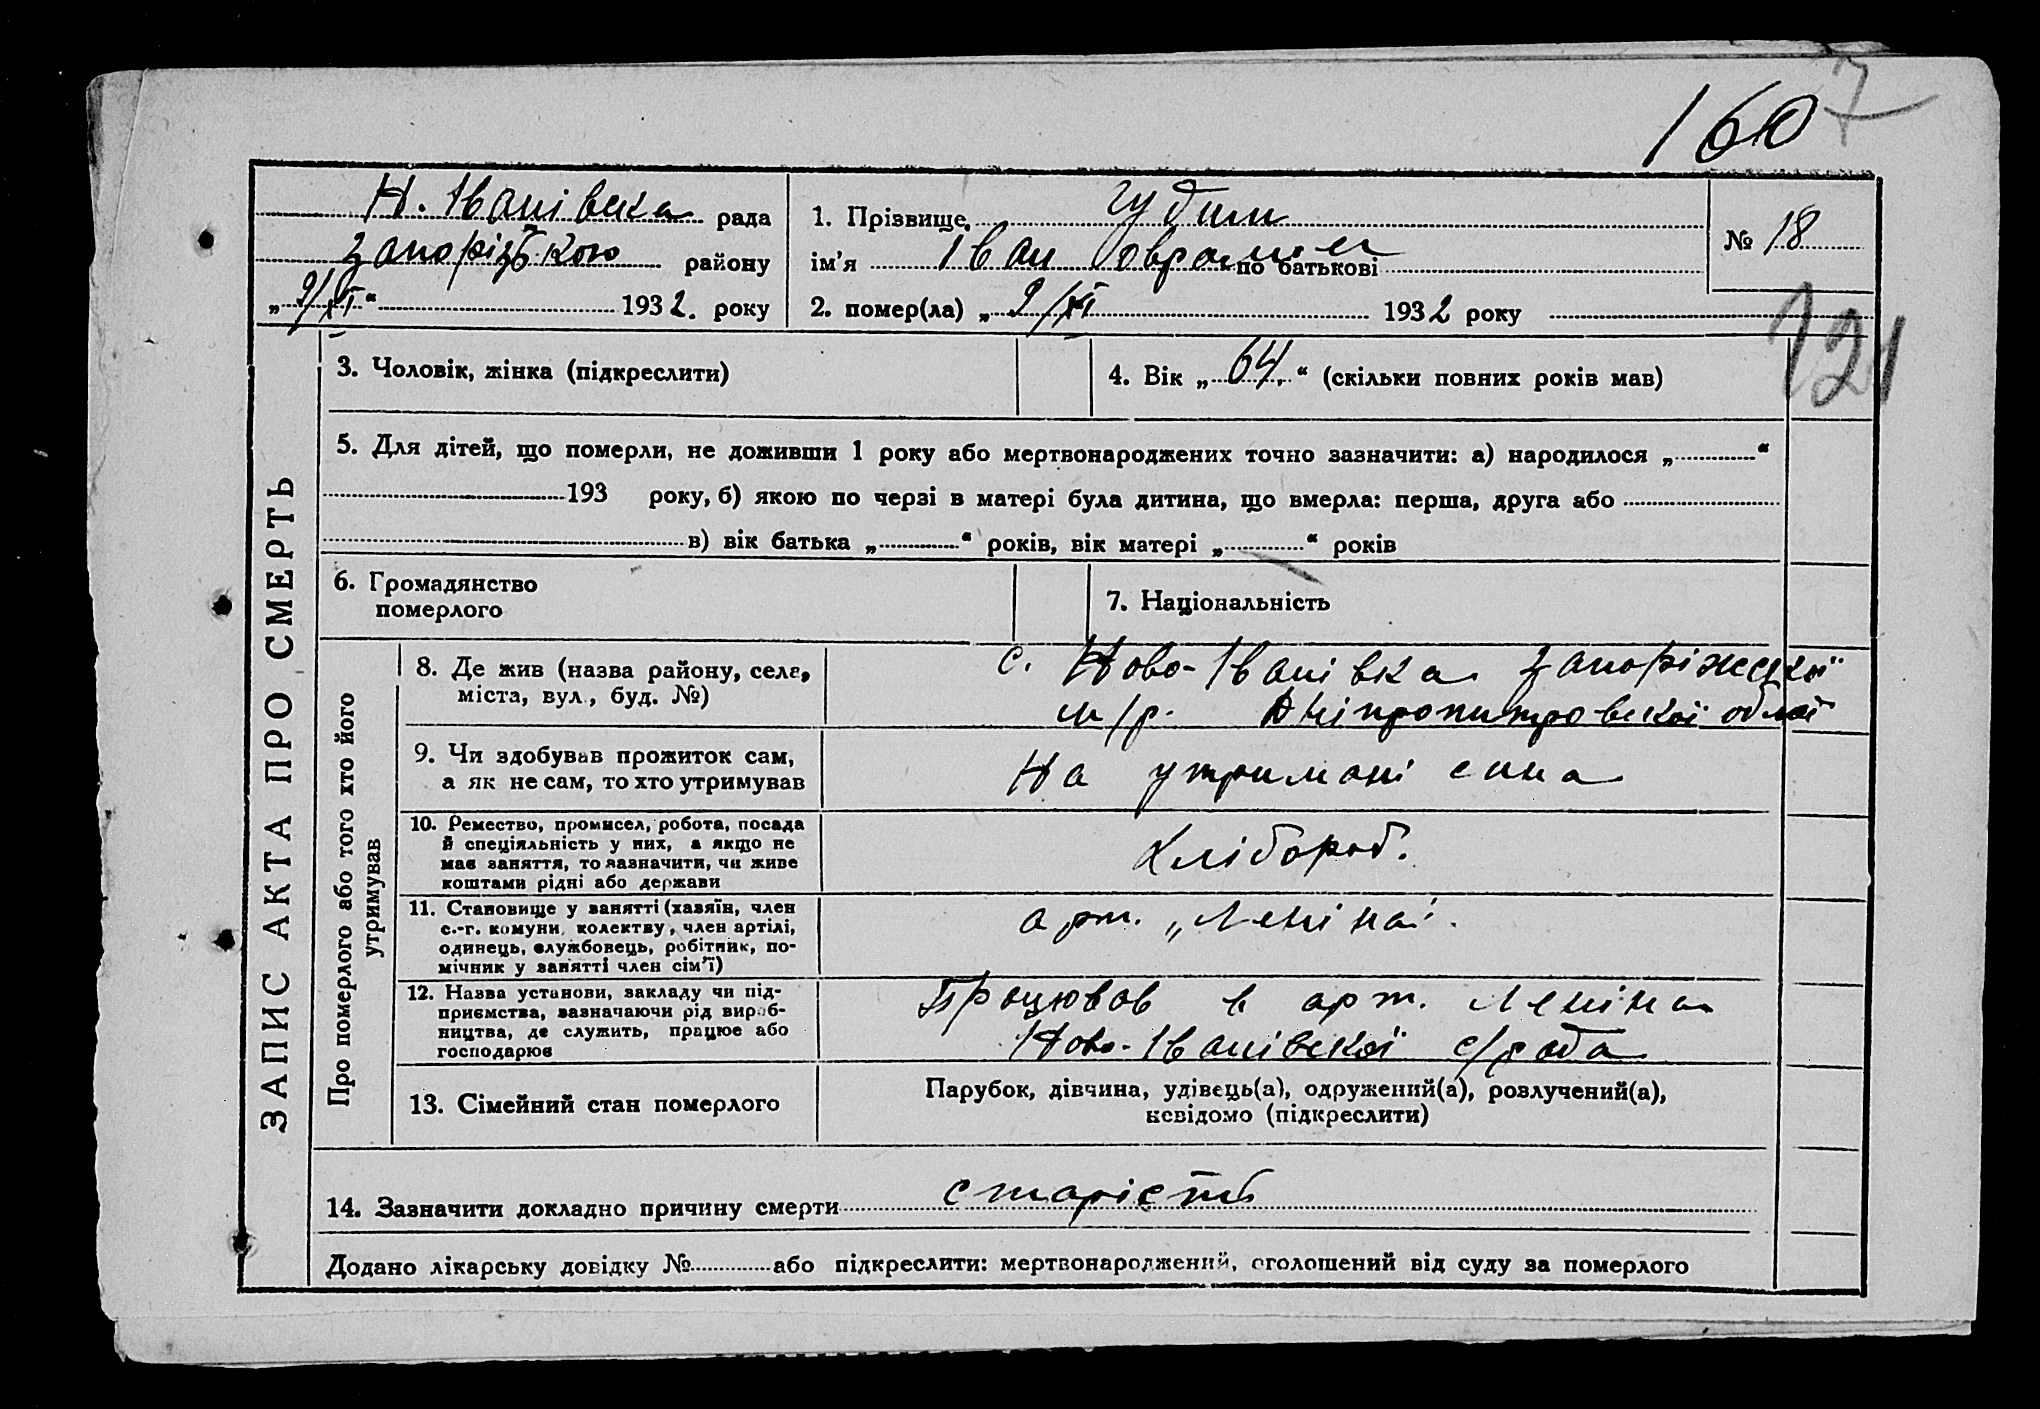 160 7
Н. Іванівська рада
Запорізького району
„9/XI“ 1932. року
1. Прізвище Чудин
ім'я Іван по батькові
2. помер(ла) „9/XI 1932 року
№ 18
121
ЗАПИС АКТА ПРО СМЕРТЬ
3. Чоловік, жінка (підкреслити)
4. Вік „64“ (скільки повних років мав)
5. Для дітей, що померли, не доживши 1 року або мертвонароджених точно зазначити: а) народилося „ “
193 року, б) якою по черзі в матері була дитина, що вмерла: перша, друга або
в) вік батька „ “ років, вік матері „ “ років
6. Громадянство
померлого
7. Національність
Про померлого або того хто його
утримував
8. Де жив (назва району, села,
міста, вул., буд. №)
с. Ново-Іванівка Запоріжської
м/р. Дніпропитровської облаї
9. Чи здобував прожиток сам,
а як не сам, то хто утримував
На утримані сина
10. Ремество, промисел, робота, посада
й спеціяльність у них, а якщо не
має заняття, то зазначити, чи живе
коштами рідні або держави
Хлібороб.
11. Становище у занятті (хазяїн, член
с.-г. комуни, колектву, член артілі,
одинець, службовець, робітник, по-
мічник у занятті член сім'ї)
арт. „Леніна".
12. Назва установи, закладу чи під-
приємства, зазначаючи рід вироб-
ництва, де служить, працює або
господарює
Працював в арт. Леніна
Ново-Іванівської с/рада
13. Сімейний стан померлого
Парубок, дівчина, удівець(а), одружений(а), розлучений(а),
невідомо (підкреслити)
14. Зазначити докладно причину смерти старість
Додано лікарську довідку № або підкреслити: мертвонароджений, оголошений від суду за померлого